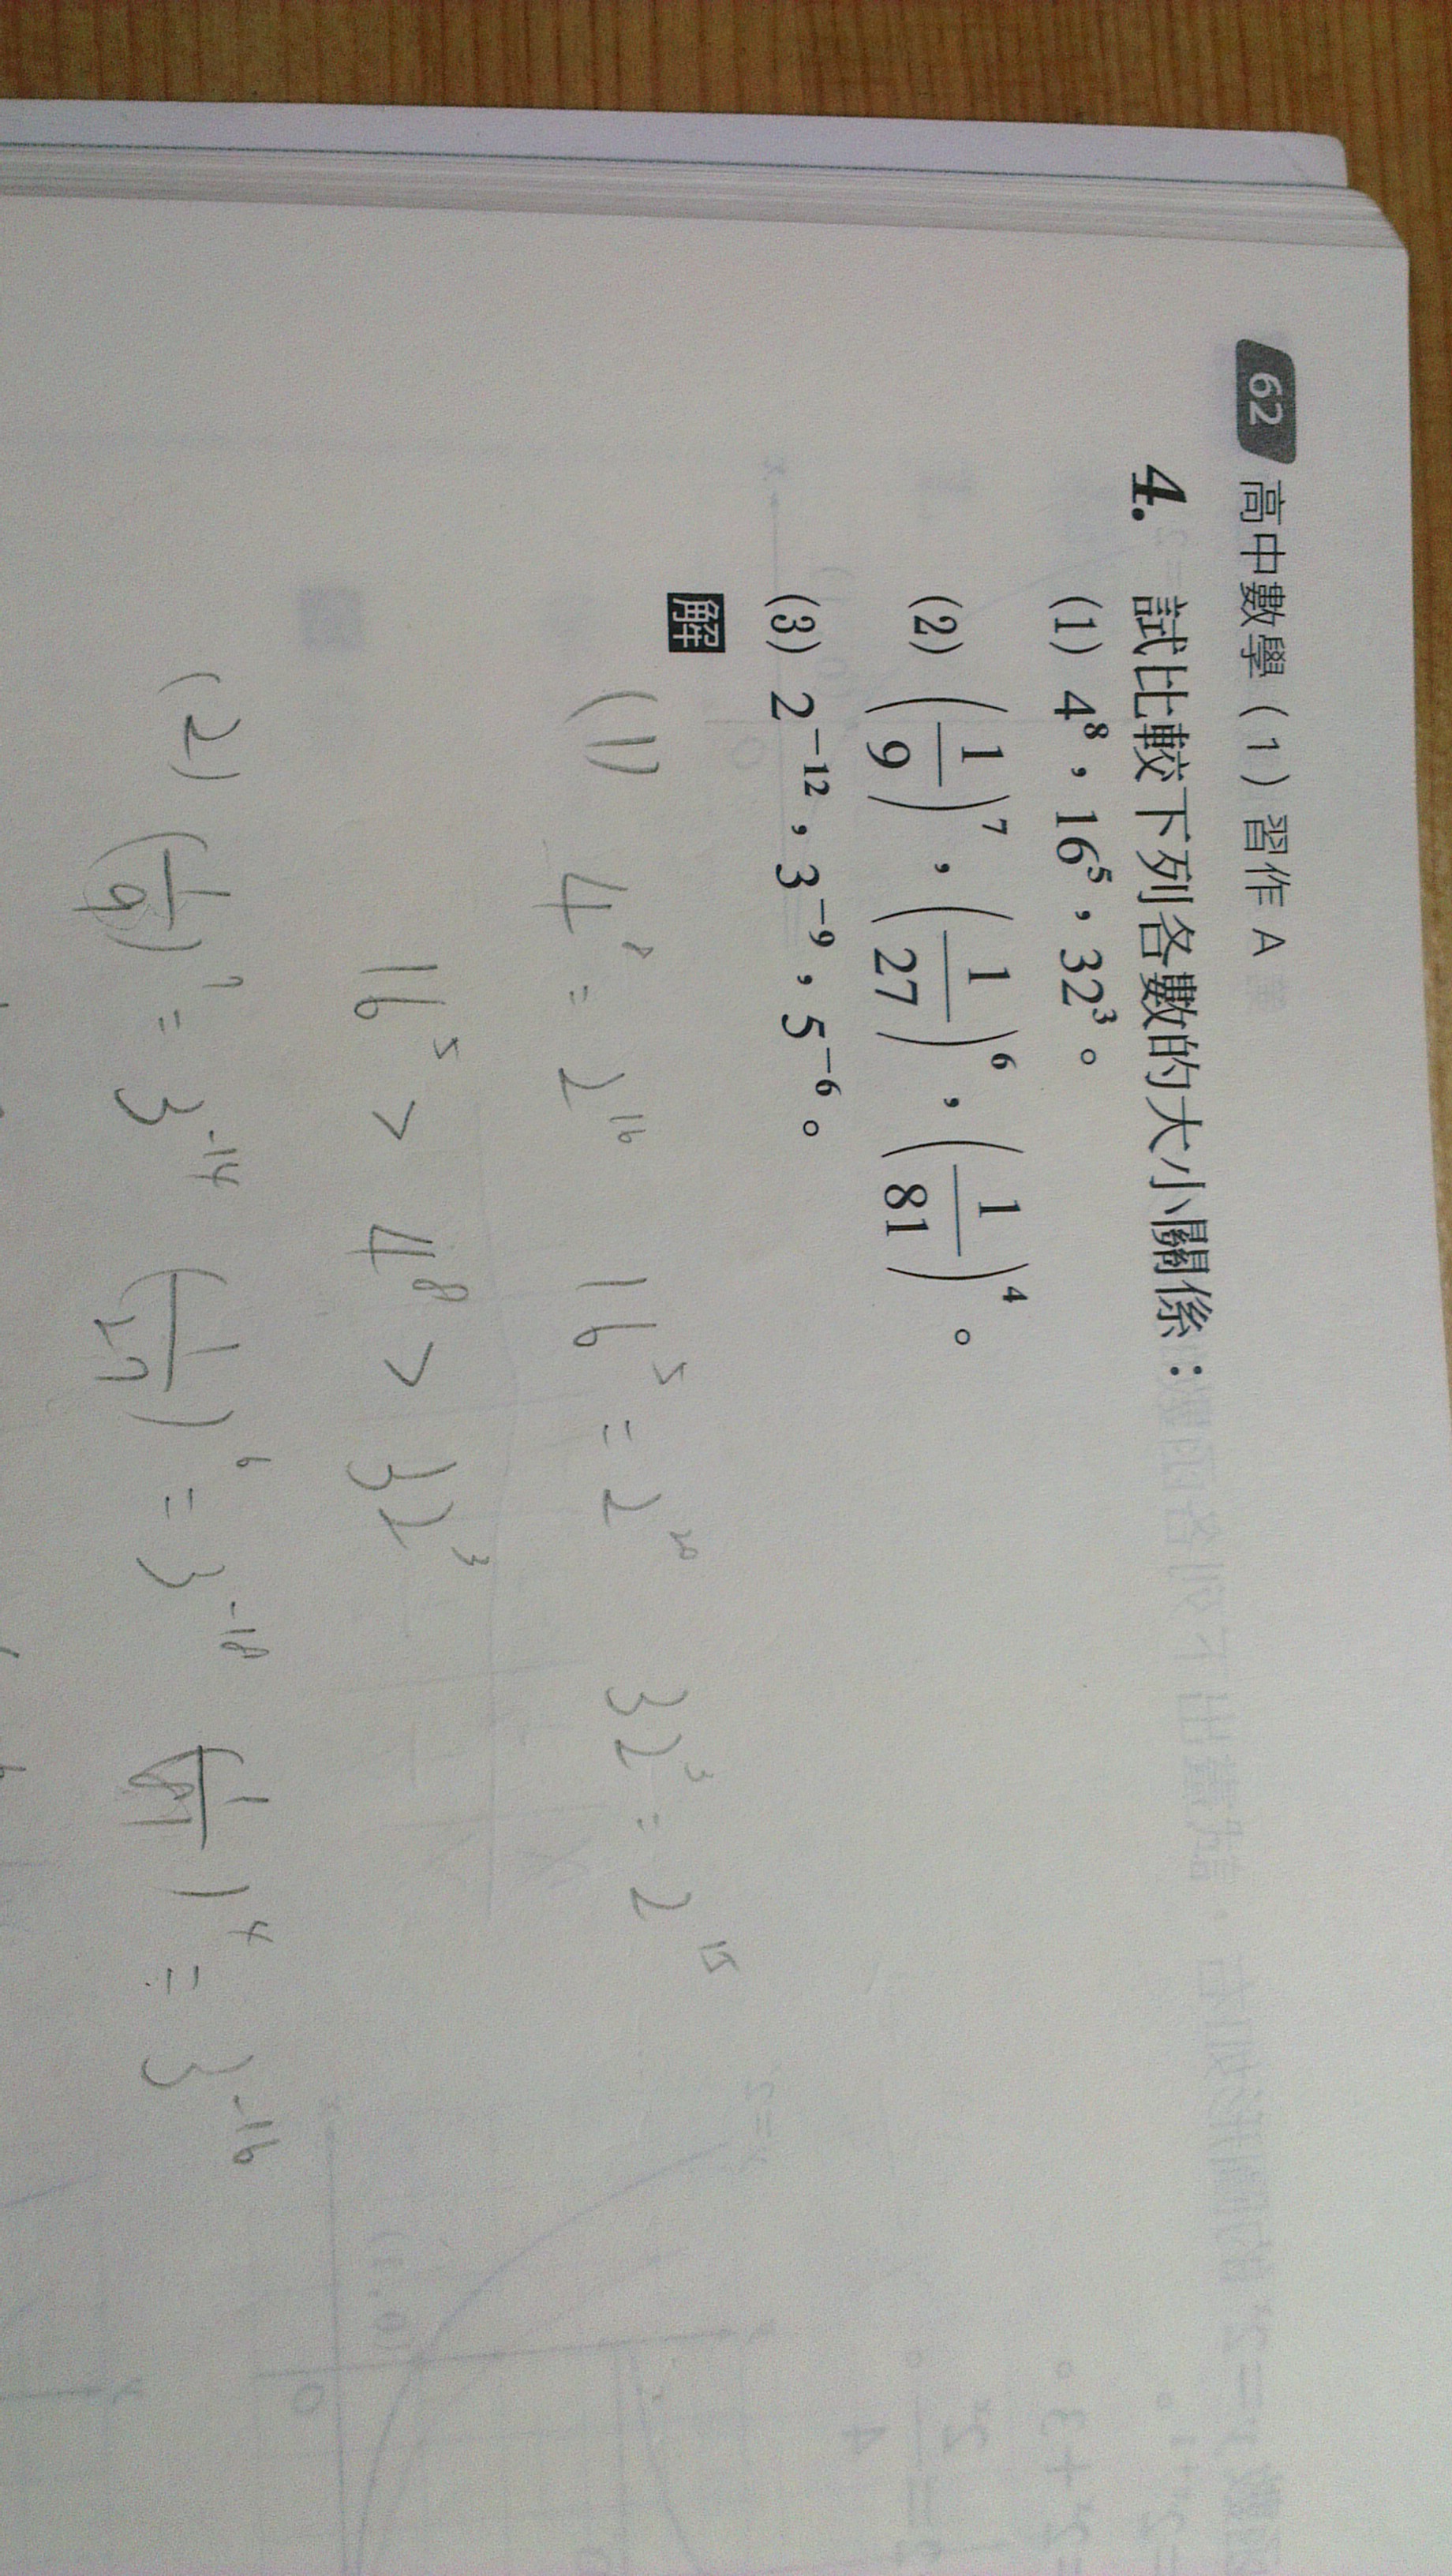 62 高中數學(1)習作 A
4. 試比較下列各數的大小關係：
(1) 4⁸，16⁵，32³。
(2) (1/9)⁷，(1/27)⁶，(1/81)⁴。
(3) 2⁻¹²，3⁻⁹，5⁻⁶。
解
(1) 4⁸ = 2¹⁶ 16⁵ = 2²⁰ 32³ = 2¹⁵
16⁵ > 4⁸ > 32³
(2) (1/9)⁷ = 3⁻¹⁴ (1/27)⁶ = 3⁻¹⁸ (1/81)⁴ = 3⁻¹⁶